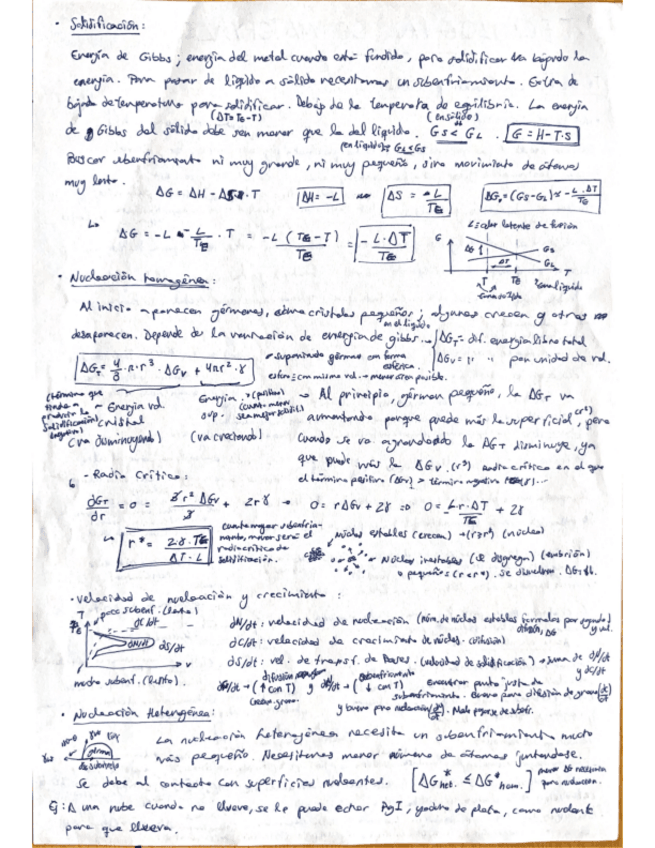 · Solidificación:
Energía de Gibbs; energía del metal cuando está fundido, para solidificar va bajando la
energía. Para pasar de líquido a sólido necesitamos un subenfriamiento. Extra de
bajada de temperatura para solidificar. Debajo de la temperatura de equilibrio. La energía
(ΔT = TE-T) (en sólido)
de Gibbs del sólido debe ser menor que la del líquido. Gs < GL . G = H-T·S
(en líquido) GL < Gs
Buscar subenfriamiento ni muy grande, ni muy pequeño, sino movimiento de átomos
muy lento.
ΔG = ΔH - ΔS · T ΔH = -L ΔS = -L/TE ΔGv = (Gs-GL) ≈ -L·ΔT/TE
L = calor latente de fusión
ΔG = -L - -L/TE · T = -L (TE-T)/TE = -L·ΔT/TE
G ΔG Gs GL ΔT T TE T
· Nucleación homogénea:
Al inicio aparecen gérmenes, como cristales pequeños; algunos crecen y otros
desaparecen. Depende de la variación de energía de gibbs... ΔGT = dif. energía libre total
en el líquido
ΔGv = " " por unidad de vol.
ΔGT = 4/3 · π · r³ · ΔGv + 4πr² · γ
suponiendo germen con forma esférica.
esfera = con mismo vol. → menor sup. posible.
(término que tiende a producir la solidificación) (negativo)
Energía vol. cristal
(va disminuyendo)
Energía sup. γ (positivo)
(va creciendo)
→ Al principio, germen pequeño, la ΔGT va
aumentando porque puede más la superficial (r²), pero
cuando se va agrandando la ΔGT disminuye, ya
que puede más la ΔGv (r³) radio crítico en el que
el término positivo (ΔGv) > término negativo
- Radio Crítico:
dGT/dr = 0 = 3r² ΔGv/3 + 2rγ → 0 = rΔGv + 2γ ⇒ 0 = Lr·ΔT/TE + 2γ
r* = 2γ·TE/ΔT·L
cuanto mayor subenfriamiento, menor será el
radio crítico de
solidificación.
núcleos estables (crecen) → (r>r*) (núcleo)
Núcleos inestables (se disgregan) (embrión)
pequeños (r<r*). Se disuelven.
· Velocidad de nucleación y crecimiento:
T poco subenf. (lento)
TE dC/dt
dN/dt dS/dt
v
mucho subenf. (lento).
dN/dt: velocidad de nucleación (núm. de núcleos estables formados por segundo y vol.
dC/dt: velocidad de crecimiento de núcleos. (difusión)
dS/dt: vel. de transf. de fases. (velocidad de solidificación) → suma de dN/dt
y dC/dt
difusión subenfriamiento
dC/dt → (↑ con T) y dN/dt → (↓ con T) encontrar punto justo de
subenfriamiento. Bueno para difusión de grano (dC/dt)
y bueno para nucleación (dN/dt).
· Nucleación Heterogénea:
germen
sustrato
La nucleación heterogénea necesita un subenfriamiento mucho
más pequeño. Necesitamos menor número de átomos juntándose.
Se debe al contacto con superficies nucleantes. [ΔG*het. ≤ ΔG*hom.] menor ΔG necesaria
para nucleación.
Ej: A una nube cuando no llueve, se le puede echar AgI; yoduro de plata, como nucleante
para que llueva.